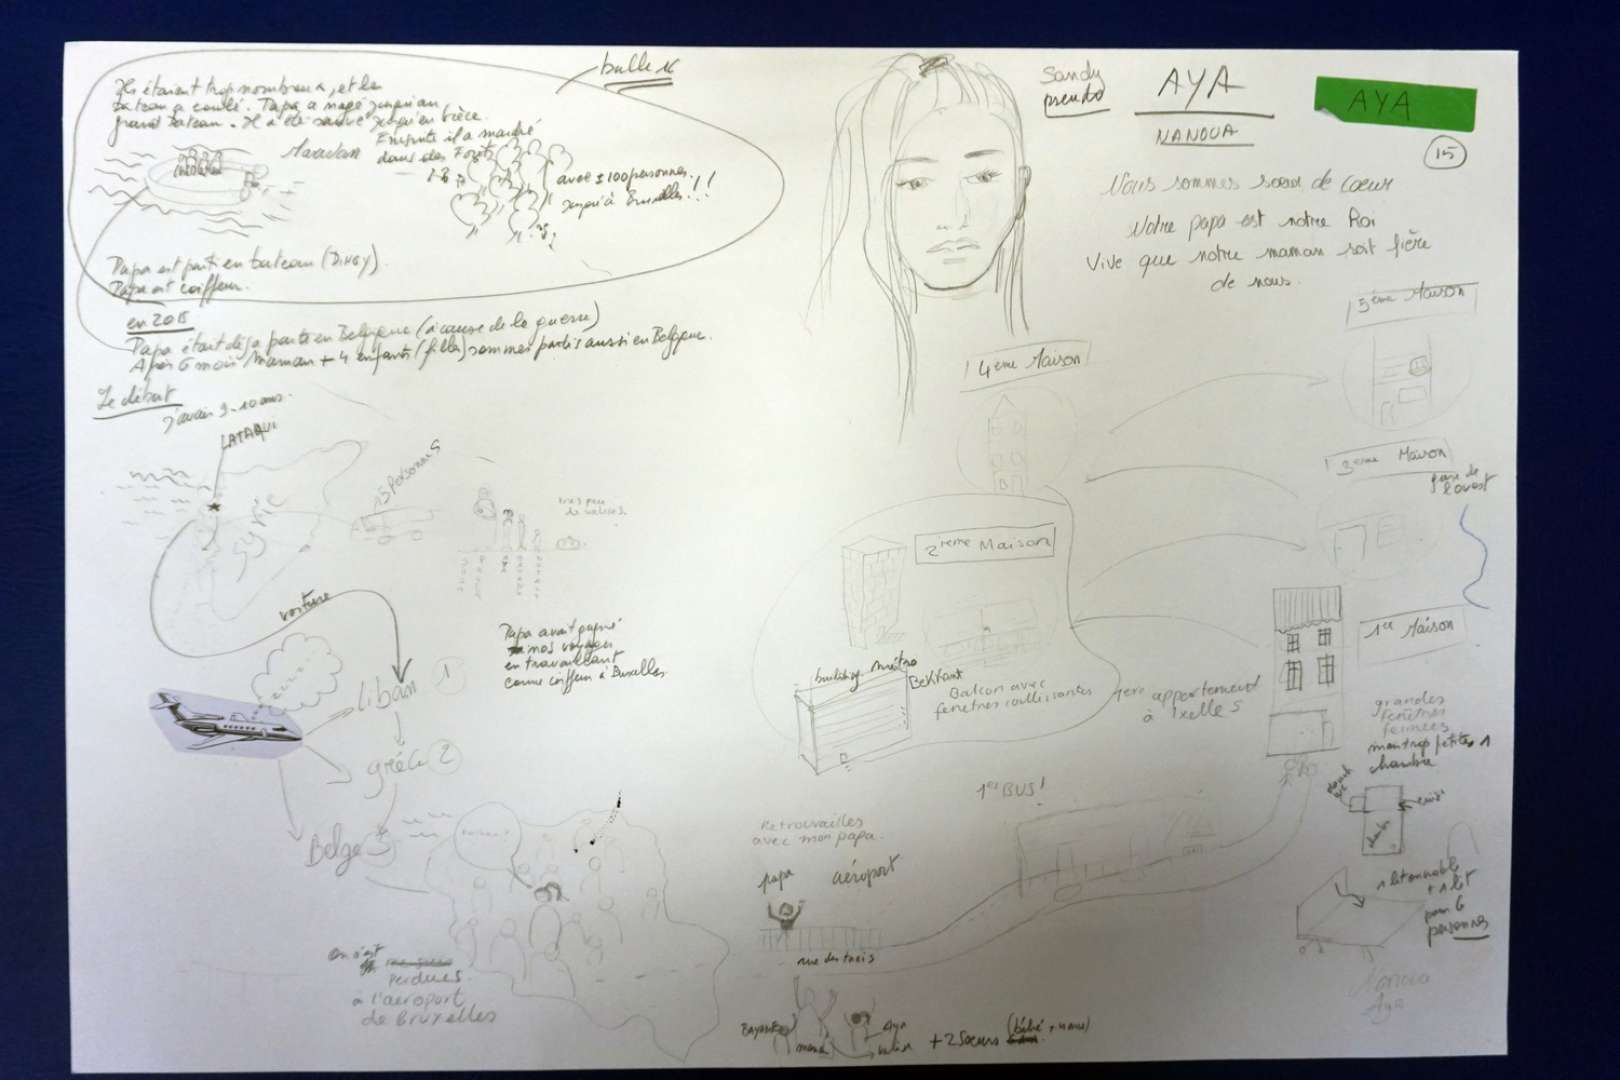 bulle 16
Ils étaient trop nombreux, et le
bateau a coulé. Papa a nagé jusqu'au
grand bateau. Il a été sauvé jusqu'en Grèce.
Ensuite il a marché
dans des Forêts
avec ± 100 personnes
jusqu'à Bruxelles!!!
Papa est parti en bateau (DINGY).
Papa est coiffeur.
en 2015
Papa était déjà parti en Belgique (à cause de la guerre)
Après 6 mois Maman + 4 enfants (filles) sommes partis aussi en Belgique.
Le début
j'avais 9-10 ans.
LATAQUI
Syrie
15 Personnes
très peu
de valises.
voiture
Papa avait gagné
nos voyages
en travaillant
comme coiffeur à Bruxelles
liban 1
gréce 2
Belge 3
on s'est
perdues
à l'aéroport
de Bruxelles
Sandy
pseudo
AYA
NANOUA
AYA
15
Nous sommes soeur de coeur
Notre papa est notre Roi
Vive que notre maman soit fière
de nous.
5ème Maison
4ème Maison
3ème Maison
gare de
l'ouest
2ième Maison
building métro
Bekkant
Balcon avec
fenêtres coulissantes
1ère Maison
1ère appartement
à Ixelles
grandes
fenêtres
fermées
mais trop petites 1
chambre
1er BUS!
Retrouvailles
avec mon papa.
papa
aéroport
1 lit
+ 1 lit
pour 6
personnes
Nanoua
Aya
Aya
+ 2 Soeurs